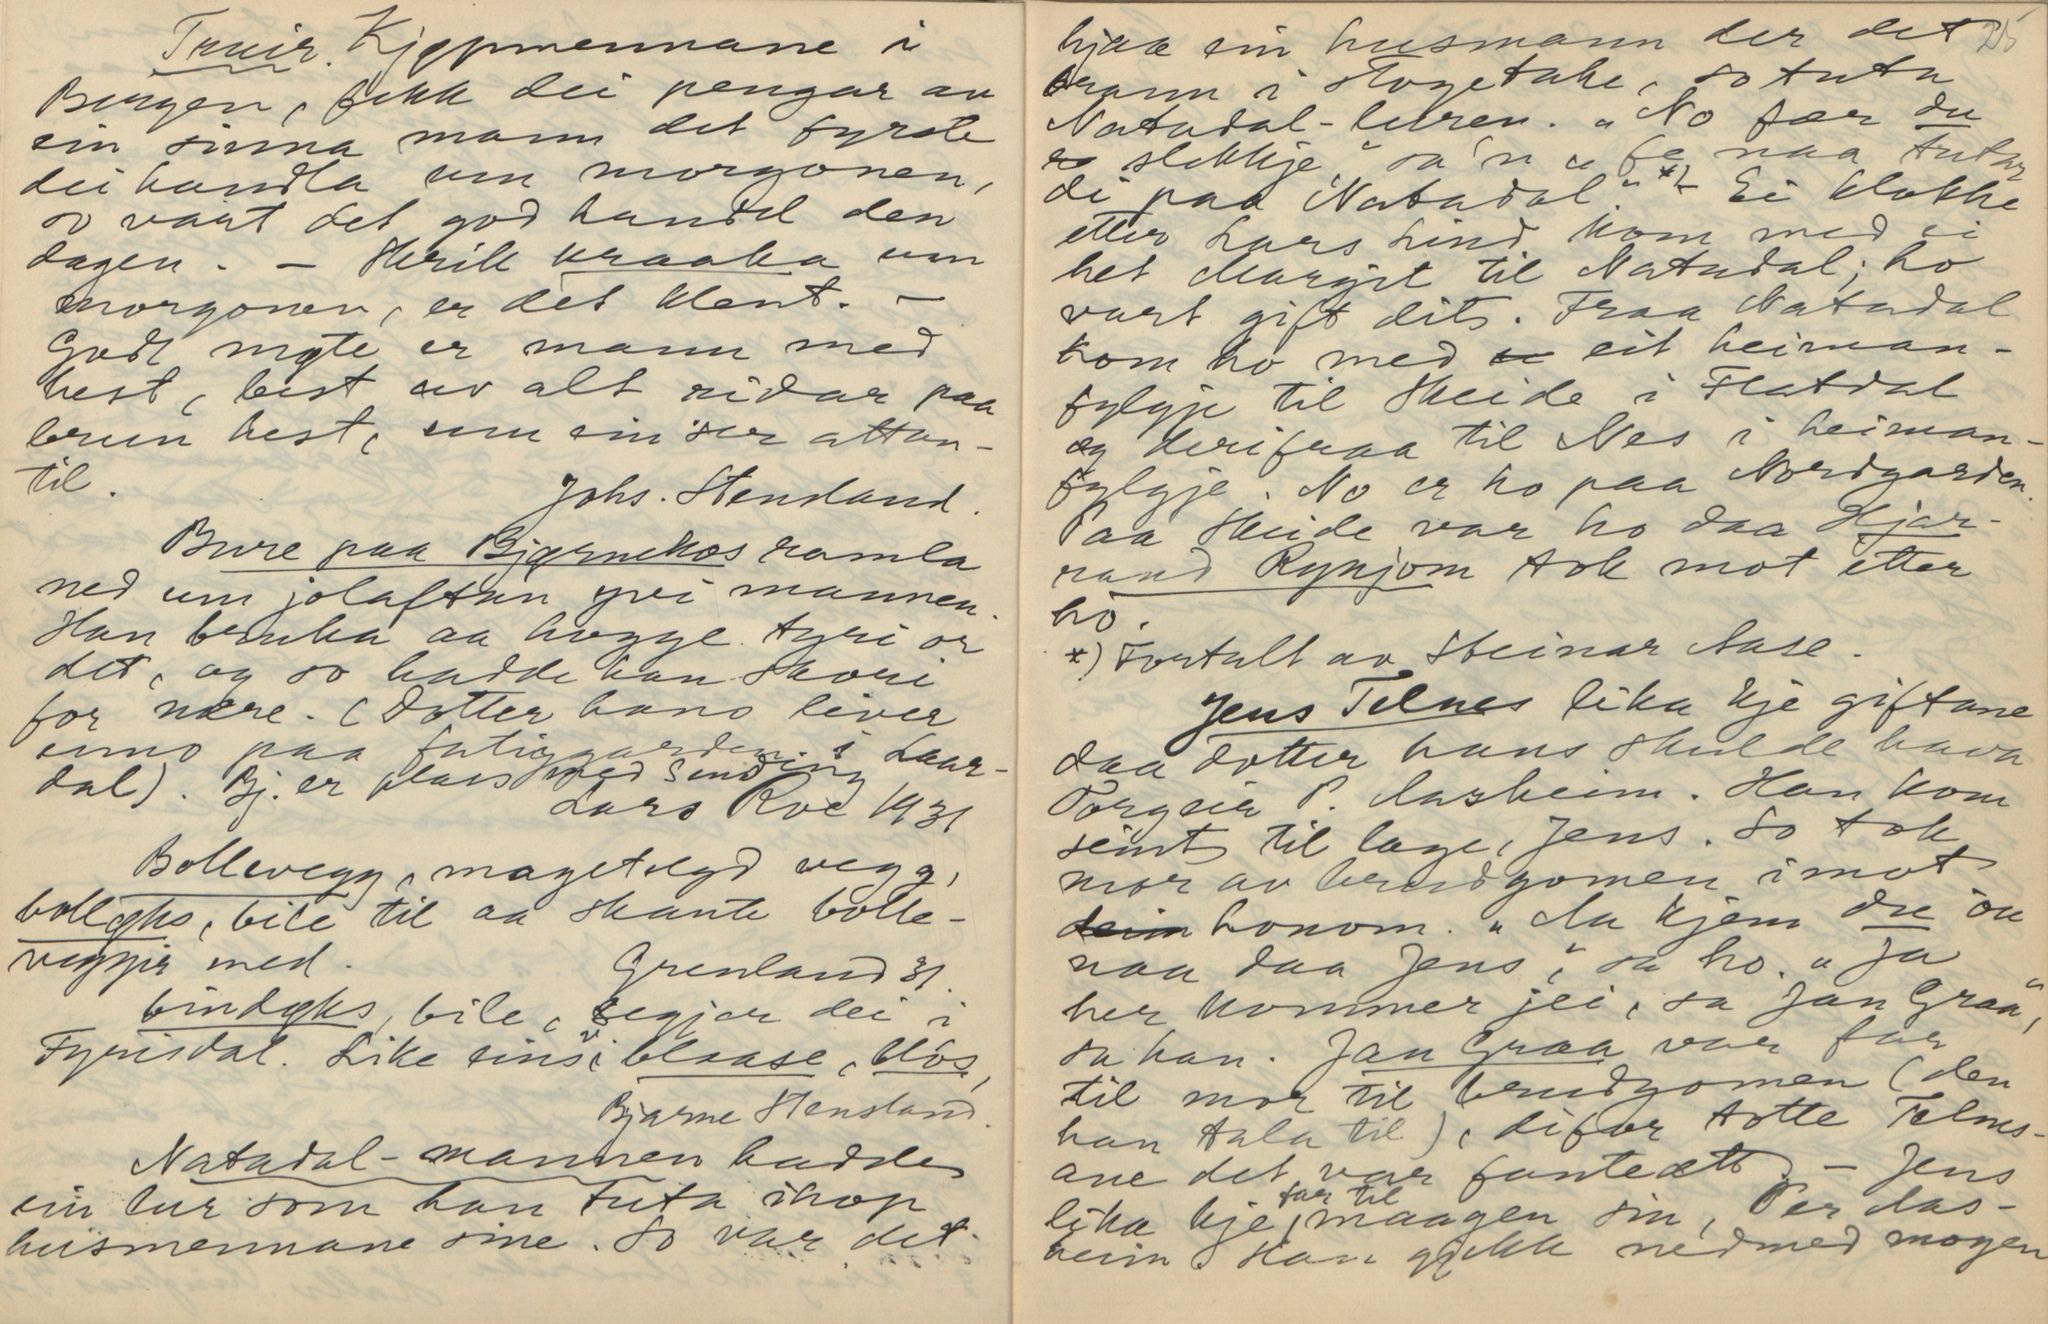 Truir. Kjøpmennane i
Bergen, fekk dei pengar av
ein sinna mann det fyrste
dei handla um morgonen,
so vart det god handel den
dagen. — Skrik kraaka um
morgonen, er det klent. —
Godt møte er mann med
hest, best av alt ridar paa
brun hest, um ein ser attan-
til.
Johs. Stensland.
Bure paa Bjørnekos ramla
ned um jolaftan yvi mannen.
Han bruka aa hogge tyri or
det, og so hadde han skori
for nære. (Dotter hans liver
enno paa fatiggarden i Laar-
dal). Bj. er plass med Sundsing
Lars Roe 1931
Bollevegg, magetelgd vegg,
bolløks, bile til aa skante bolle-
veggjir med.
Grenland 31.
bindøks, bile, segjer dei i
Fyrisdal. Like eins: blaase, blös,
Bjarne Stensland.
Natadal-mannen hadde
ein lur som han tuta ihop
husmennane sine. So var det
25
hjaa ein husmann der det
brann i stogetake, so tuta
Natadal-luren. "No fær du
sløkkje" sa'n "fe naa tutar
di paa Natadal." *) — Ei klokke
etter Lars Lind kom med ei
het Margit til Natadal; ho
vart gift dit. Fraa Natadal
kom ho med eit heiman-
fylgje til Skeide i Flatdal
og derifraa til Nes i heiman-
fylgje. No er ho paa Nordgarden.
Paa Skeide var ho daa Hjar-
rand Rynjom tok mot etter
ho.
*) Fortalt av Steinar Aase.
Jens Telnes lika kje giftane
daa dotter hans skulde hava
Torgeir P. Aasheim. Han kom
seint til lage, Jens. So tok
mor av brudgomen imot
honom. "Au kjem du òu
naa daa Jens", sa ho. "Ja
her kommer jei, sa Jan Graa",
sa han. Jan Graa var far
til mor til brudgomen (den
han tala til), difor totte Telnes-
ane det var fanteætt. — Jens
lika kje far til maagen sin, Per Aas-
heim. Han gjekk nedmed mogen